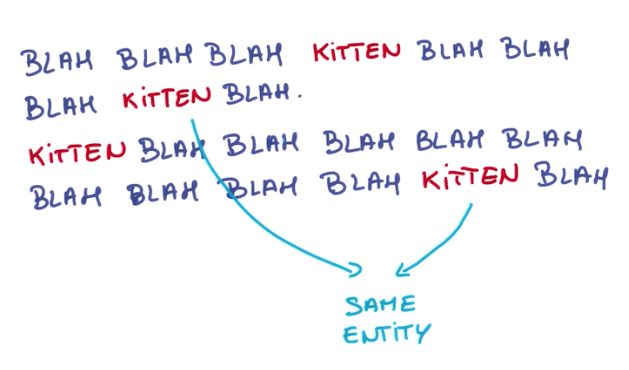 BLAH BLAH BLAH KITTEN BLAH BLAH
BLAH KITTEN BLAH.
KITTEN BLAH BLAH BLAH BLAH BLAH
BLAH BLAH BLAH BLAH KITTEN BLAH
SAME
ENTITY